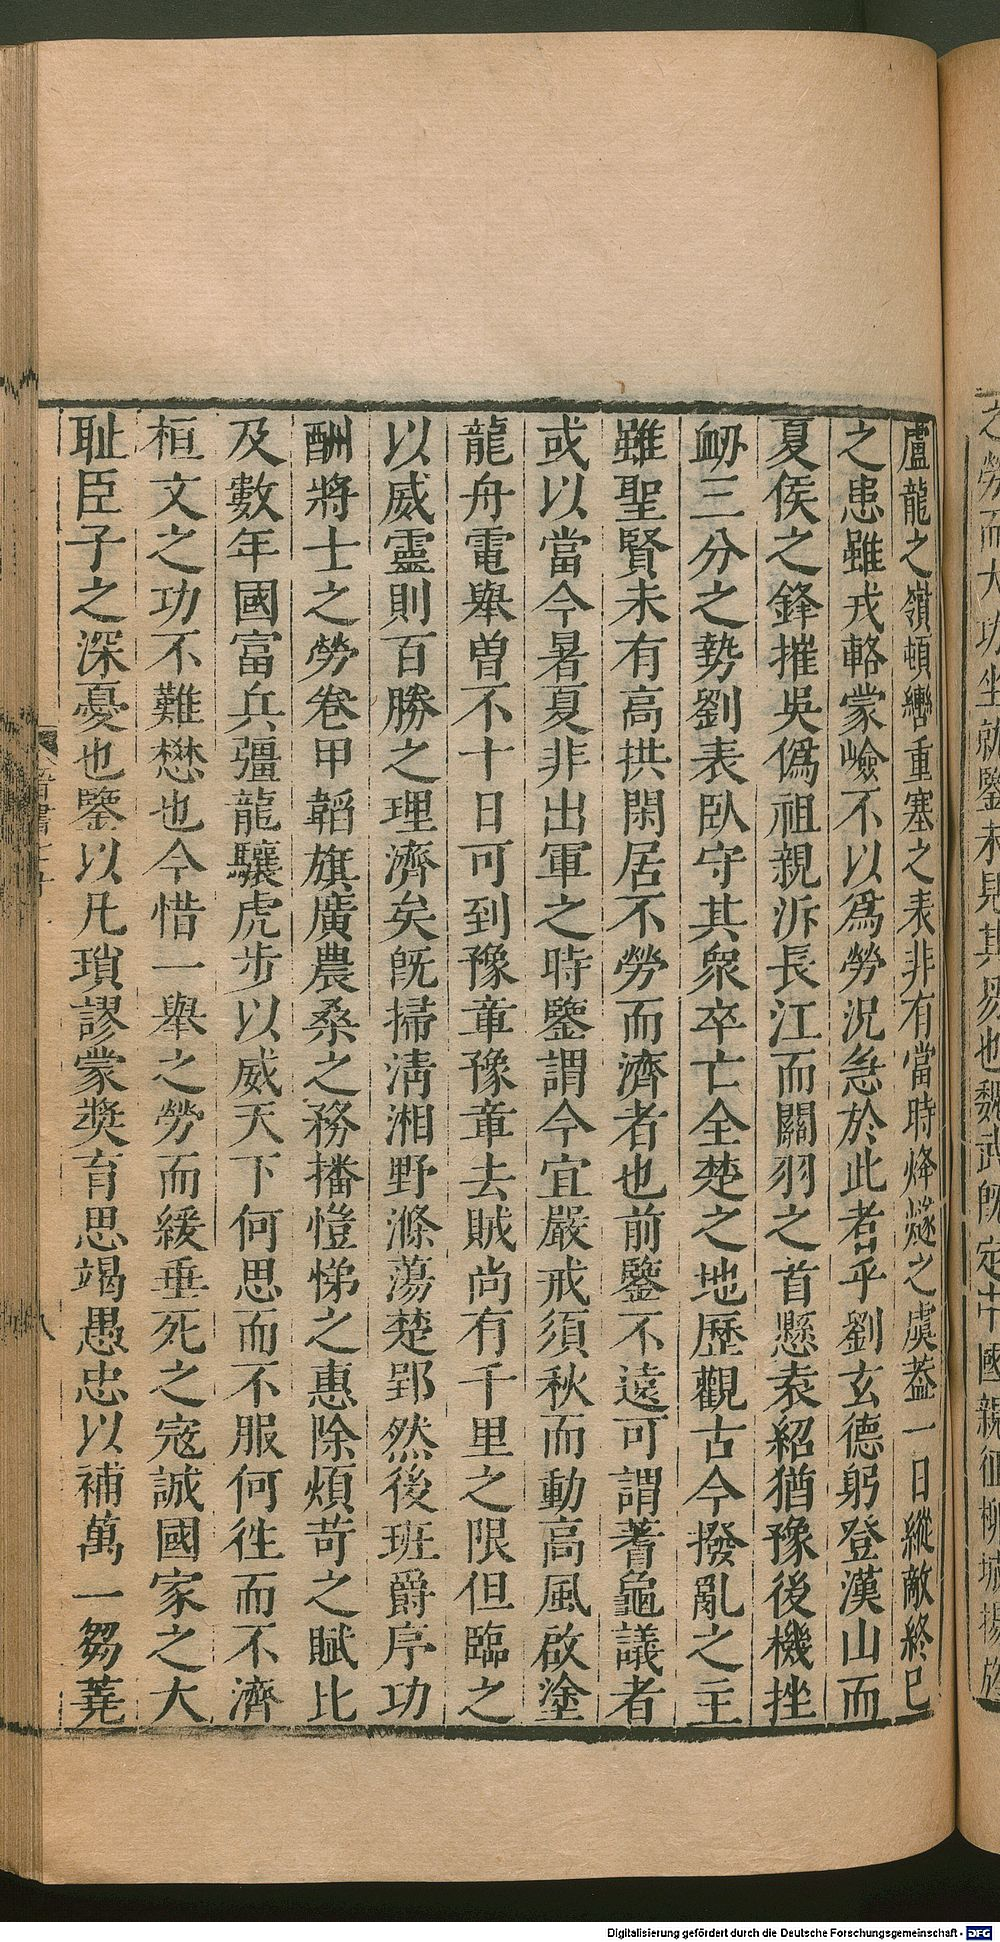 之勞而大功坐就鑒未見其易也魏武旣定中國親征柳城揚旂
盧龍之嶺頓轡重塞之表非有當時烽燧之虞葢一日縱敵終已
之患雖戎輅蒙嶮不以爲勞況急於此者乎劉玄德躬登漢山而
夏侯之鋒摧吳僞祖親泝長江而關羽之首懸袁紹猶豫後機挫
衂三分之勢劉表臥守其衆卒亡全楚之地歷觀古今撥亂之主
雖聖賢未有高拱閑居不勞而濟者也前鑒不遠可謂蓍龜議者
或以當今暑夏非出軍之時鑒謂今宜嚴戒須秋而動高風啟塗
龍舟電舉曾不十日可到豫章豫章去賊尚有千里之限但臨之
以威靈則百勝之理濟矣旣掃淸湘野滌蕩楚郢然後班爵序功
酬將士之勞卷甲韜旗廣農桑之務播愷悌之惠除煩苛之賦比
及數年國富兵彊龍驤虎步以威天下何思而不服何徃而不濟
桓文之功不難懋也今惜一舉之勞而緩垂死之寇誠國家之大
耻臣子之深憂也鑒以凡瑣謬蒙奬育思竭愚忠以補萬一芻蕘
晉書
八
Digitalisierung gefördert durch die Deutsche Forschungsgemeinschaft - DFG